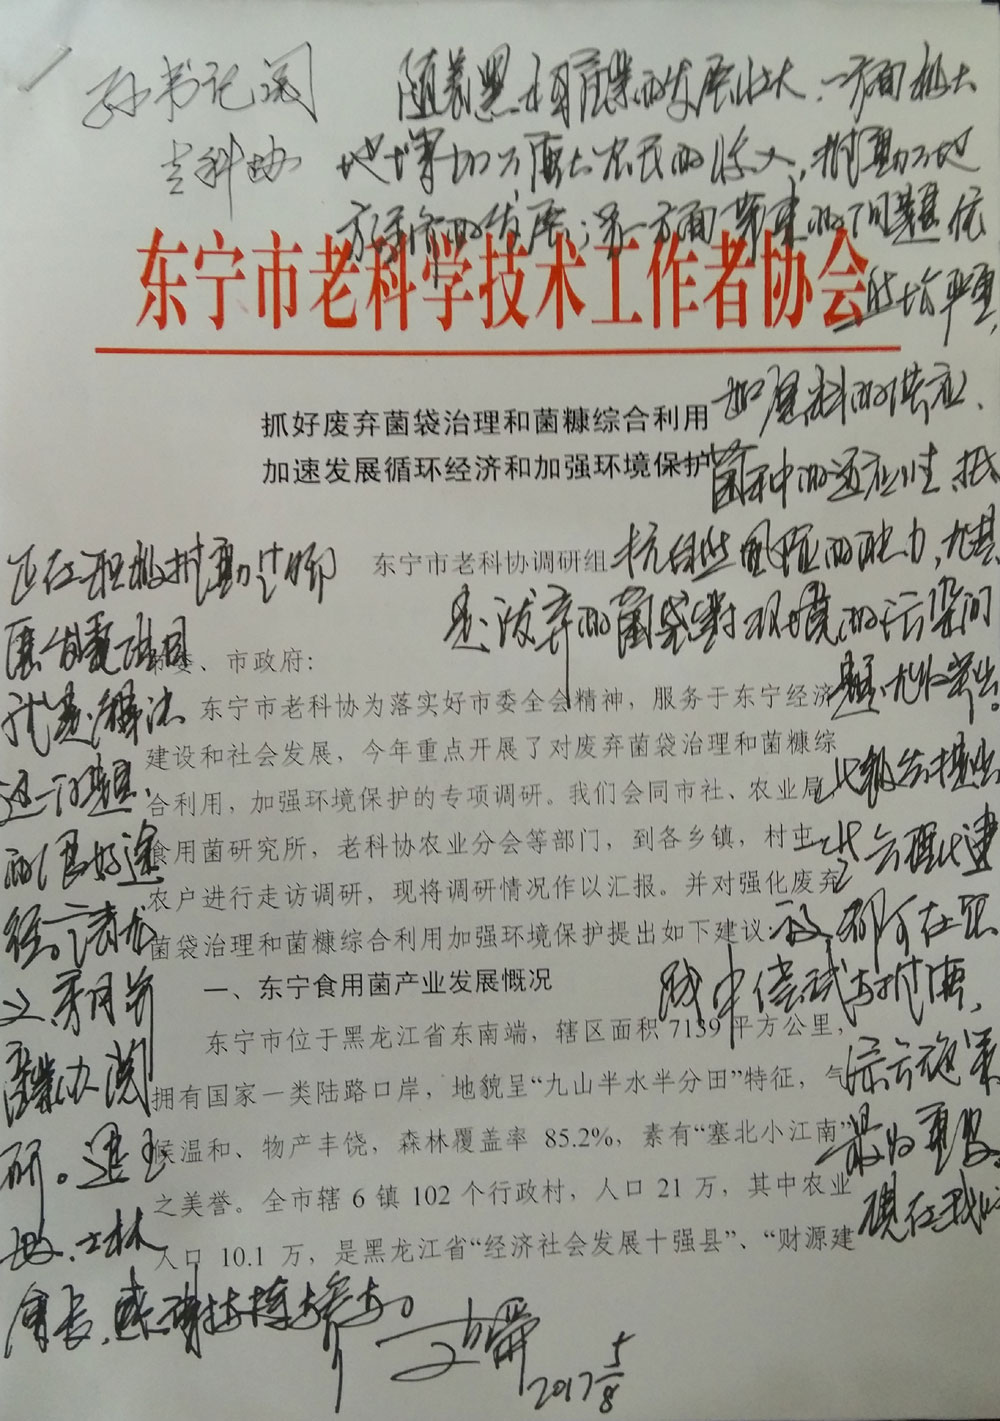 孙书记阅
科协
随着黑木耳产业的发展壮大,一方面极大
地增加了广大农民的收入,推动了地
方经济的发展;另一方面带来的问题依
东宁市老科学技术工作者协会
严重,
抓好废弃菌袋治理和菌糠综合利用
如原料的供应、
加速发展循环经济和加强环境保护
菌种的适应性、抵
东宁市老科协调研组
抗自然风险的能力,尤其
是废弃的菌袋对环境的污染问
题,尤为突出。
市委、市政府:
东宁市老科协为落实好市委全会精神,服务于东宁经济
建设和社会发展,今年重点开展了对废弃菌袋治理和菌糠综
合利用,加强环境保护的专项调研。我们会同市社、农业局
食用菌研究所,老科协农业分会等部门,到各乡镇,村屯
农户进行走访调研,现将调研情况作以汇报。并对强化废弃
菌袋治理和菌糠综合利用加强环境保护提出如下建议
报告提出
建
议,都可在实
践中尝试与推广,
一、东宁食用菌产业发展慨况
东宁市位于黑龙江省东南端,辖区面积 7139 平方公里,
拥有国家一类陆路口岸,地貌呈“九山半水半分田”特征,气
候温和、物产丰饶,森林覆盖率 85.2%,素有“塞北小江南”
之美誉。全市辖 6 镇 102 个行政村,人口 21 万,其中农业
人口 10.1 万,是黑龙江省“经济社会发展十强县”、“财源建
施策
最为重要。
现在我们
正在积极推动
就是解决
这一问题
的良好途
径。请
产业办阅
研。
会长,感谢
2017 5/8